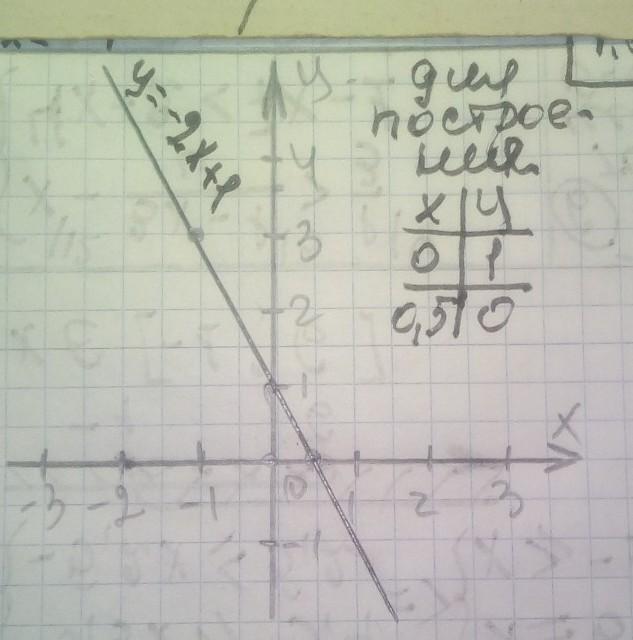 y=-2x+1
y
для
построе-
ния
x y
0 1
0,5 0
4
3
2
1
x
-3 -2 -1 0 1 2 3
-1